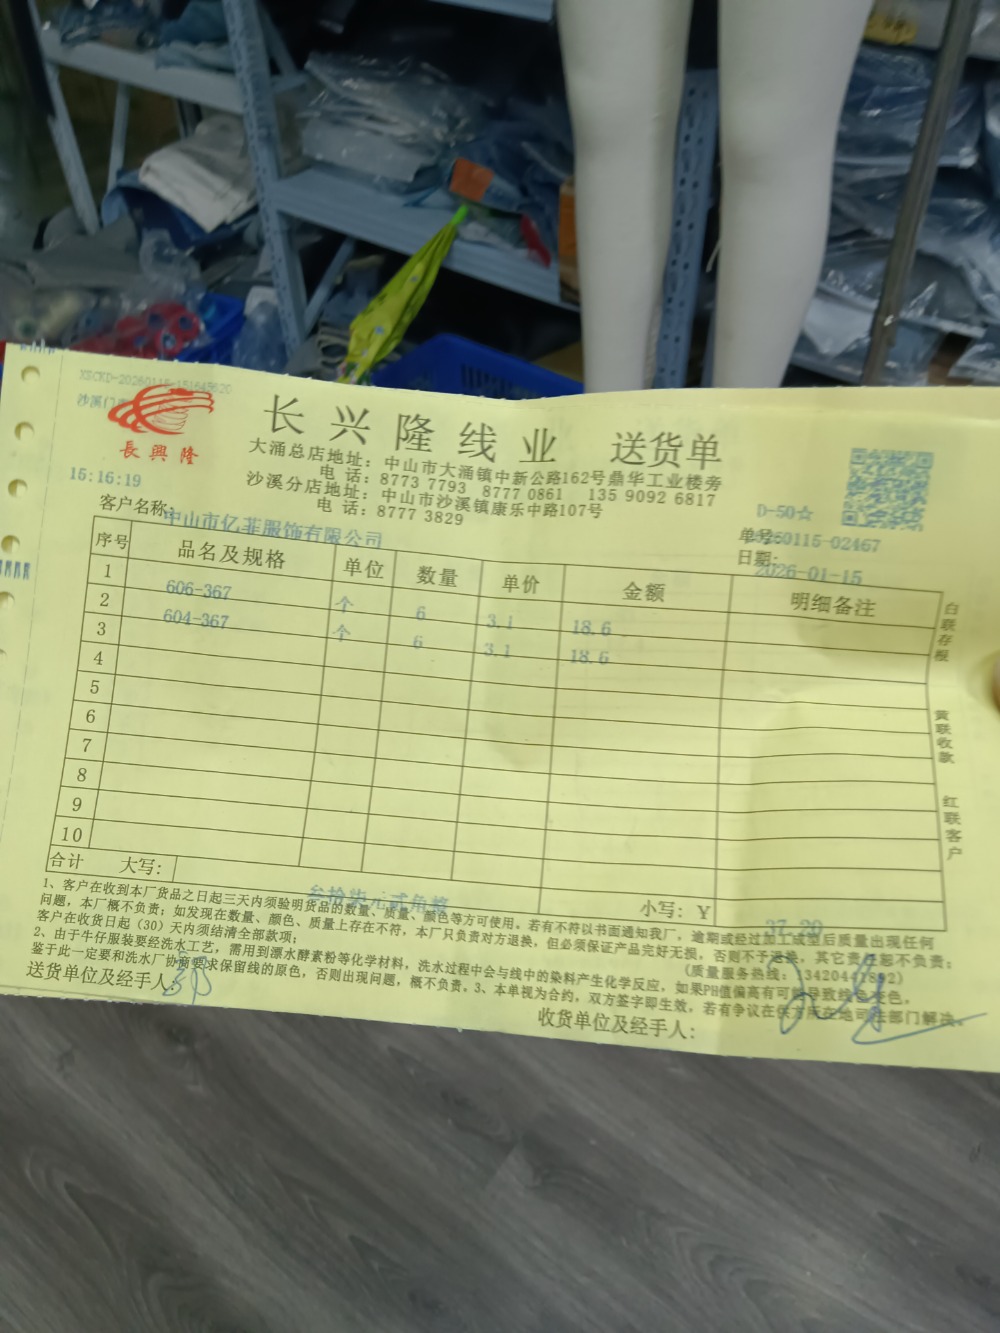 XSCKD-20260115-151645620
沙溪门
長興隆
长兴隆线业 送货单
大涌总店地址：中山市大涌镇中新公路162号鼎华工业楼旁
电 话：8773 7793 8777 0861 135 9092 6817
沙溪分店地址：中山市沙溪镇康乐中路107号
电 话：8777 3829
15:16:19
D-50☆
客户名称：中山市亿菲服饰有限公司
单号：20260115-02467
日期：2026-01-15
序号 品名及规格 单位 数量 单价 金额 明细备注
1 606-367 个 6 3.1 18.6
2 604-367 个 6 3.1 18.6
3
4
5
6
7
8
9
10
合计 大写： 叁拾柒元贰角整 小写：Y 37.20
白联存根
黄联收款
红联客户
1、客户在收到本厂货品之日起三天内须验明货品的数量、质量、颜色等方可使用。若有不符以书面通知我厂，逾期或经过加工成型后质量出现任何
问题，本厂概不负责；如发现在数量、颜色、质量上存在不符，本厂只负责对方退换，但必须保证产品完好无损，否则不予退换，其它责任恕不负责；
客户在收货日起（30）天内须结清全部款项；
(质量服务热线：13420441892)
2、由于牛仔服装要经洗水工艺，需用到漂水酵素粉等化学材料，洗水过程中会与线中的染料产生化学反应，如果PH值偏高有可能导致线色变色，
鉴于此一定要和洗水厂协商要求保留线的原色，否则出现问题，概不负责。3、本单视为合约，双方签字即生效，若有争议在供方所在地司法部门解决。
送货单位及经手人：
收货单位及经手人：